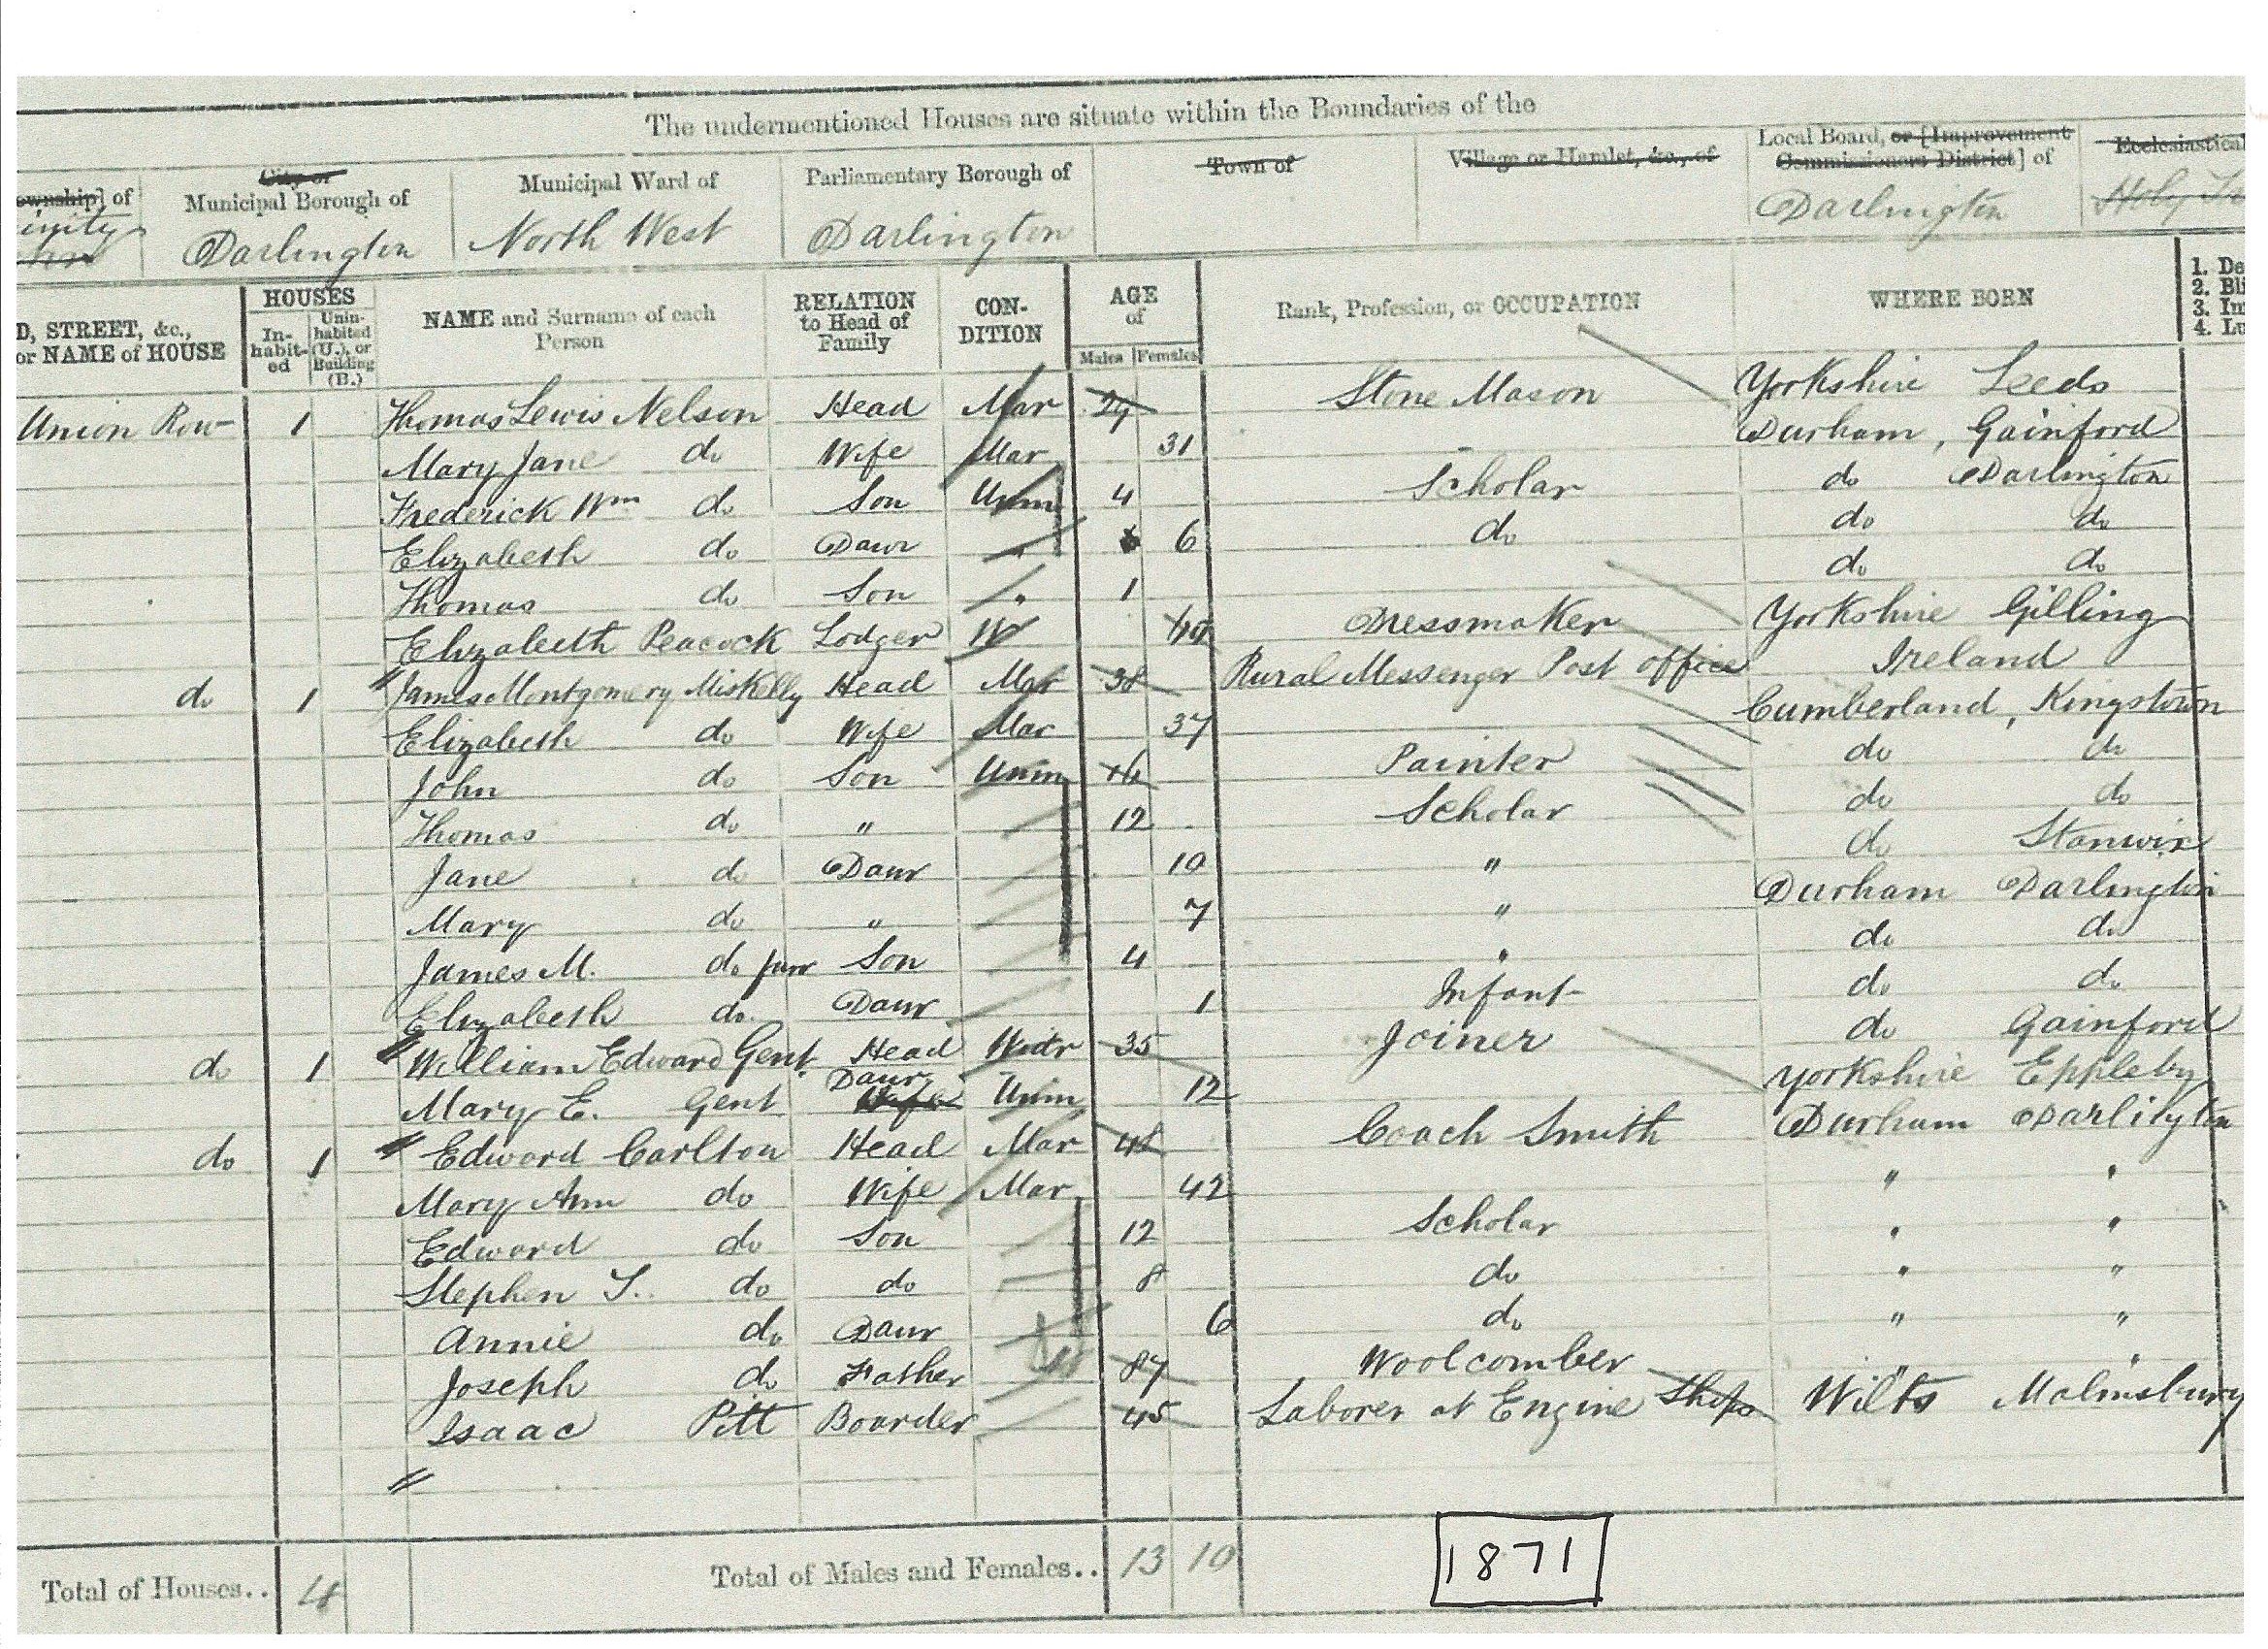 The undermentioned Houses are situate within the Boundaries of the
ownship] of City or Municipal Borough of Municipal Ward of Parliamentary Borough of Town of Village or Hamlet, &c., of Local Board, or [Improvement Commissioners District] of Ecclesiastical
inity Darlington North West Darlington Darlington Holy
D, STREET, &c., or NAME of HOUSE HOUSES In-habit-ed Unin-habited (U.), or Building (B.) NAME and Surname of each Person RELATION to Head of Family CON-DITION AGE of Males Females Rank, Profession, or OCCUPATION WHERE BORN 1. De 2. Bli 3. Im 4. Lu
Union Row 1 Thomas Lewis Nelson Head Mar 29 Stone Mason Yorkshire Leeds
Mary Jane do Wife Mar 31 Durham, Gainford
Frederick Wm do Son Unm 4 Scholar do Darlington
Elizabeth do Daur " 6 do do do
Thomas do Son " 1 do do
Elizabeth Peacock Lodger W Dressmaker Yorkshire Gilling
do 1 James Montgomery Miskelly Head Mar 38 Rural Messenger Post office Ireland
Elizabeth do Wife Mar 37 Cumberland, Kingstown
John do Son Unm 16 Painter do do
Thomas do " 12 Scholar do do
Jane do Daur 10 " do Stanwix
Mary do " 7 " Durham Darlington
James M. do junr Son 4 " do do
Elizabeth do. Daur 1 Infant do do
do 1 William Edward Gent Head Widr 35 Joiner do Gainford
Mary E. Gent Wife Daur Unm 12 Yorkshire Eppleby
do 1 Edward Carlton Head Mar 48 Coach Smith Durham Darlington
Mary Ann do Wife Mar 42 " "
Edward do Son 12 Scholar " "
Stephen T. do do 8 do " "
Annie do Daur 6 do " "
Joseph do Father 87 Woolcomber " "
Isaac Pitt Boarder 45 Laborer at Engine Shops Wilts Malmsbury
Total of Houses.. 4 Total of Males and Females.. 13 10
1871